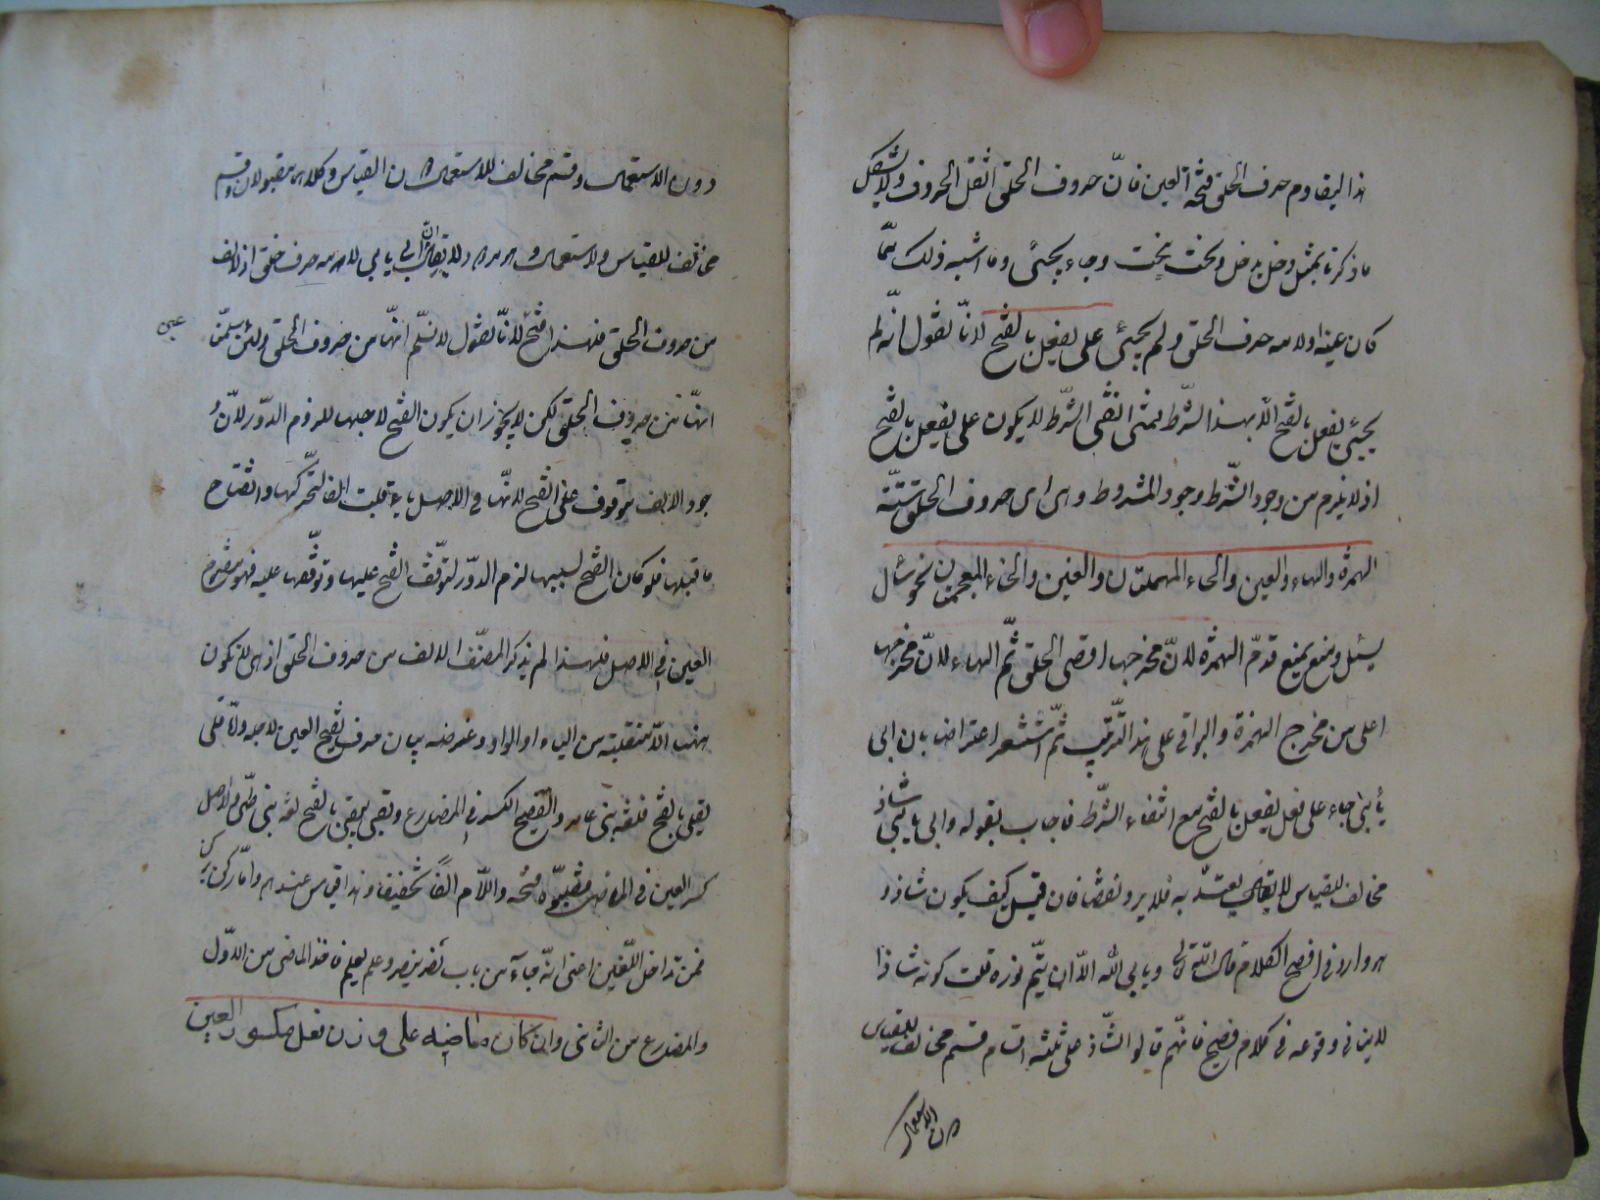 هذا ليقاوم حرف الحلق فتحة العين فان حروف الحلق اثقل الحروف ولا يشكل
ما ذكرنا بمثل دخل يدخل ونحت ينحت وجاء يجيئ وما اشبه ذلك مما
كان عينه او لامه حرف الحلق ولم يجيئ على يفعل بالفتح لانا نقول انه لم
يجيئ يفعل بالفتح الا بهذا الشرط فمتى انتفى الشرط لا يكون على يفعل بالفتح
اذ لا يلزم من وجود الشرط وجود المشروط وهي اى حروف الحلق ستة
الهمزة والهاء والعين والحاء المهملتان والغين والخاء المعجمتان نحو سأل
يسئل ومنع يمنع قدم الهمزة لان مخرجها اقصى الحلق ثم الهاء لان مخرجها
اعلى من مخرج الهمزة والبواقى على هذا الترتيب ثم استشعر اعتراضا بان ابى
يأبى جاء على فعل يفعل بالفتح مع انتفاء الشرط فاجاب بقوله وابى يابى شاذ
مخالف للقياس لا يعتد به فلا يرد نقضا فان قيل كيف يكون شاذا و
هو وارد فى افصح الكلام قال الله تعالى ويابى الله الا ان يتم نوره قلت كونه شاذا
لا ينافى وقوعه فى كلام فصيح فانهم قالوا الشاذ على ثلثة اقسام قسم مخالف للقياس
دون الاستعمال
دون الاستعمال وقسم مخالف للاستعمال دون القياس وكلاهما مقبولان وقسم
مخالف للقياس والاستعمال وهو مردود لا يقال ان ابى يابى لامه حرف حلق اذ الالف
من حروف الحلق فلهذا فتح لانا نقول لا نسلم انها من حروف الحلق ولئن سلمنا
انها من حروف الحلق لكن لا يجوز ان يكون الفتح لاجلها للزوم الدور لان و
جود الالف موقوف على الفتح لانها فى الاصل ياء قلبت الفا لتحركها وانفتاح
ما قبلها فلو كان الفتح لسببها لزم الدور لتوقف الفتح عليها وتوقفها عليه فهو مفتوح
العين فى الاصل فلهذا لم يذكر المصنف الالف من حروف الحلق اذ هى لا تكون
ههنا الا منقلبة من الياء او الواو وغرضه بيان حرف يفتح العين لاجله واما قلى
يقلى بالفتح فلغة بنى عامر والفصيح الكسر فى المضارع وبقى يبقى بالفتح لغة بنى طى والاصل
كسر العين فى الماضى فقلبوه فتحة واللام الفا تخفيفا وهذا قياس عندهم واما ركن يركن
فمن تداخل اللغتين اعنى انه جاء من باب نصر ينصر وعلم يعلم فاخذ الماضى من الاول
والمضارع من الثانى وان كان ماضيه على وزن فعل مكسور العين